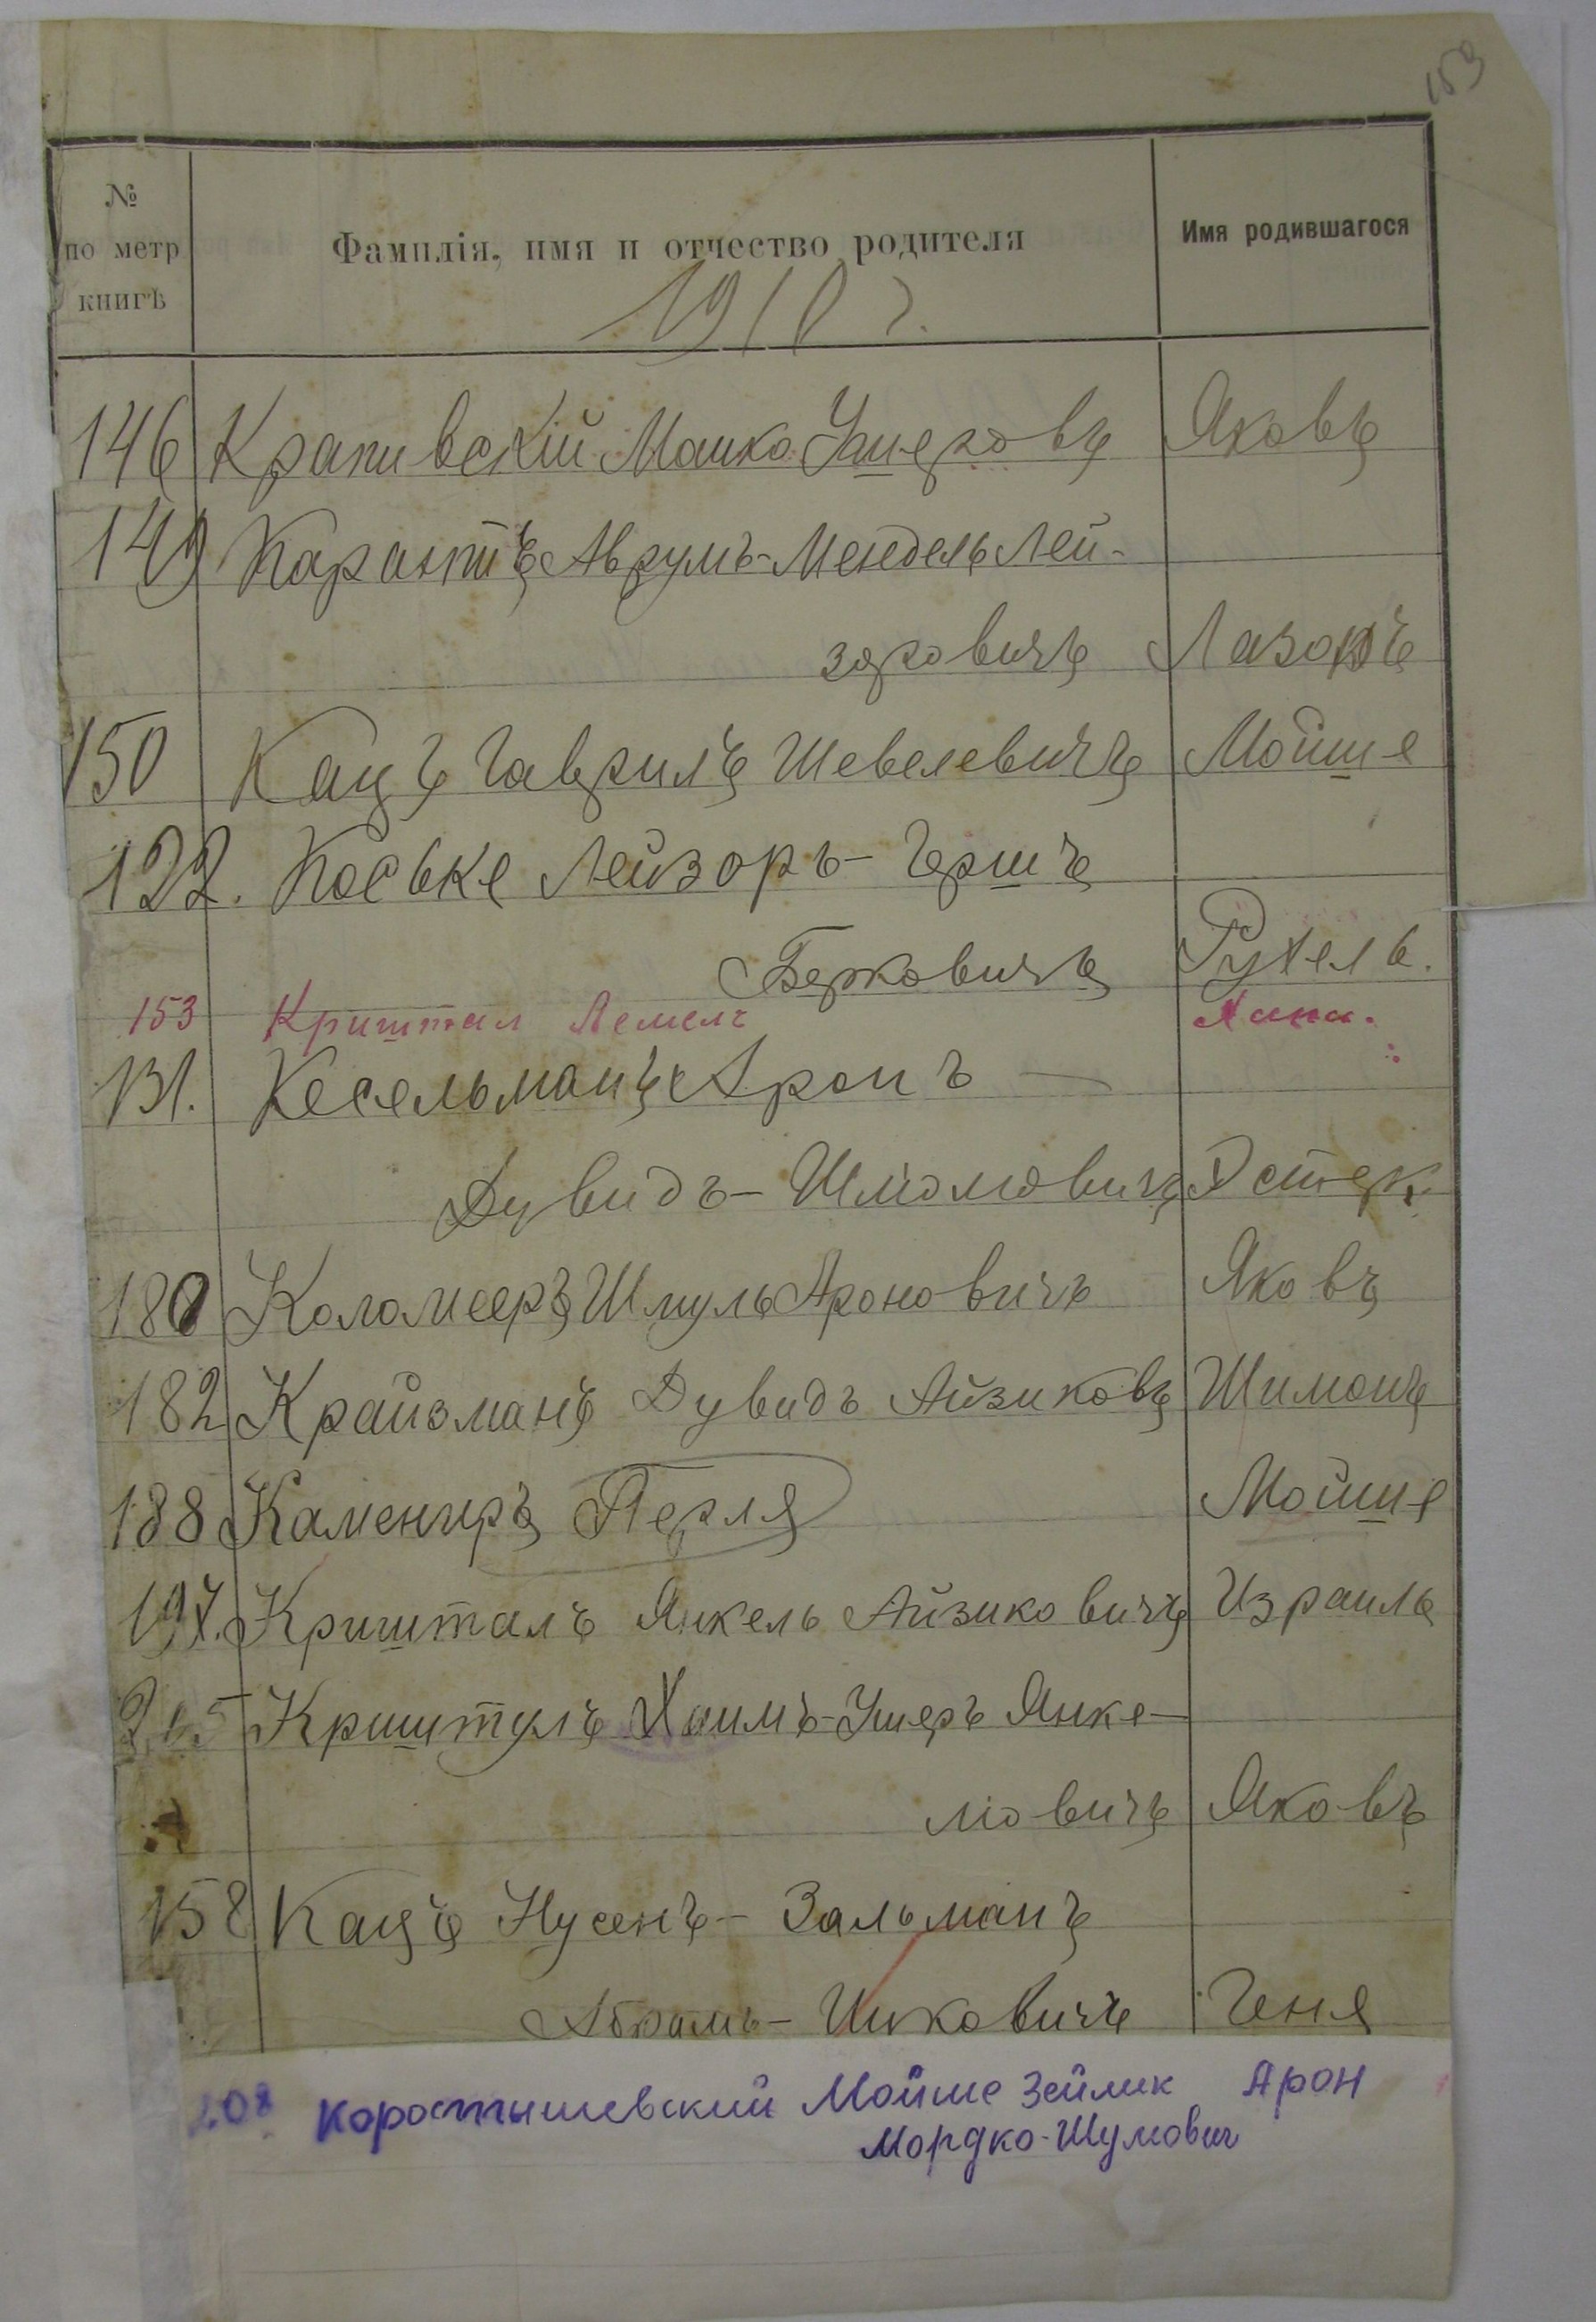 153
№ по метр книгѣ
Фамилія, имя и отчество родителя
Имя родившагося
1910 г.
146 Крапивскій Мошко Ушеровъ Яковъ
149 Карантъ Аврумъ-Мендель Лей-
зоровичъ Лазоръ
150 Кацъ Гаврилъ Шевелевичъ Мойше
122. Коське Лейзоръ-Гершъ
Берковичъ Рухель.
153 Криштал Лемель Хана.
131. Кесельманъ Аронъ —
Дувидъ-Шломовичъ Эстер
180 Коломееръ Шмуль Ароновичъ Яковъ
182 Крайзманъ Дувидъ Айзиковъ Шимонъ
188 Камениръ Перля Мойше
197. Кришталъ Янкель Айзиковичъ Израиль
205 Криштулъ Хаимъ-Ушеръ Янке-
лювичъ Яковъ
158 Кацъ Нусенъ-Зальманъ
Абрамъ-Ицковичъ Геня
208 Коростышевский Мойше Зейлик Арон
Мордко-Шумович